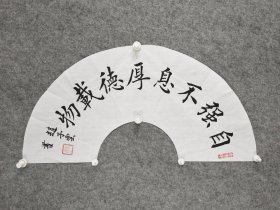 自强不息厚德載物